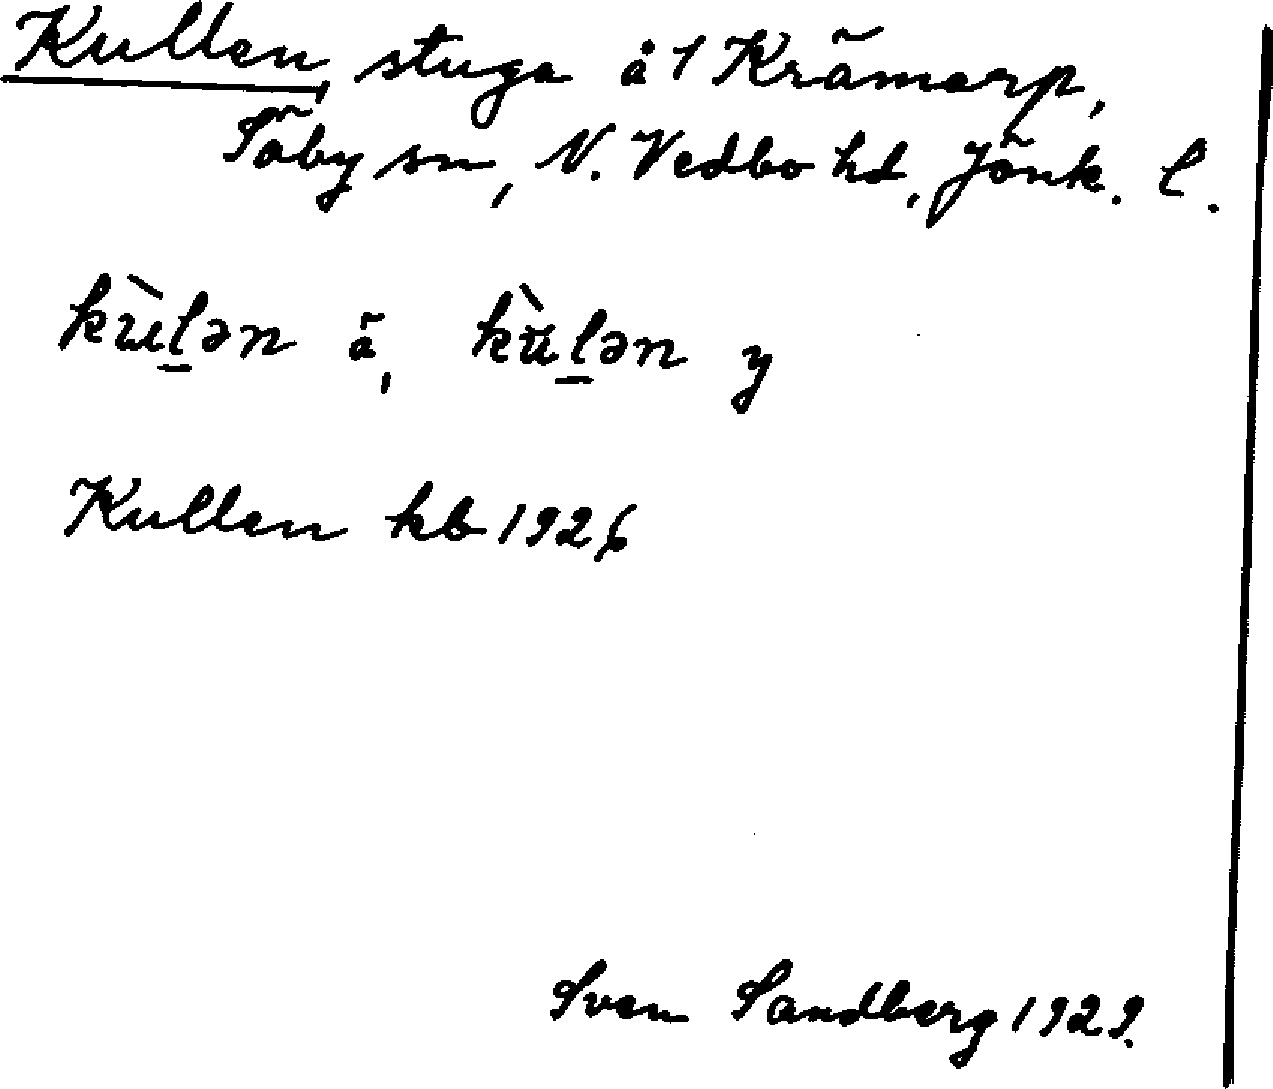 Kullen, stuga å 1 Krämarp,
Säby sn, N. Vedbo hd, Jönk. l.
kùl̠ən ä, kùl̠ən y
Kullen kb 1926
Sven Sandberg 1929.